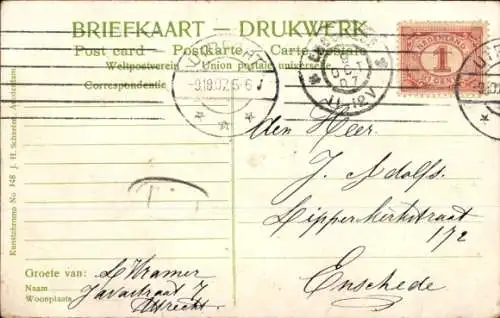 BRIEFKAART – DRUKWERK
Post card – Postkarte – Carte postale
Weltpostverein – Union postale universelle
Correspondentie
UTRECHT
-9.10.07.5-6
11-12V
NEDERLAND
1
CENT
den Heer
J. Adolfs.
Lipperkerkstraat
172
Enschede
Groete van: L Kramer
Naam Javastraat 7
Woonplaats Utrecht
Kunstchromo No 148 J. H. Schaefer, Amsterdam